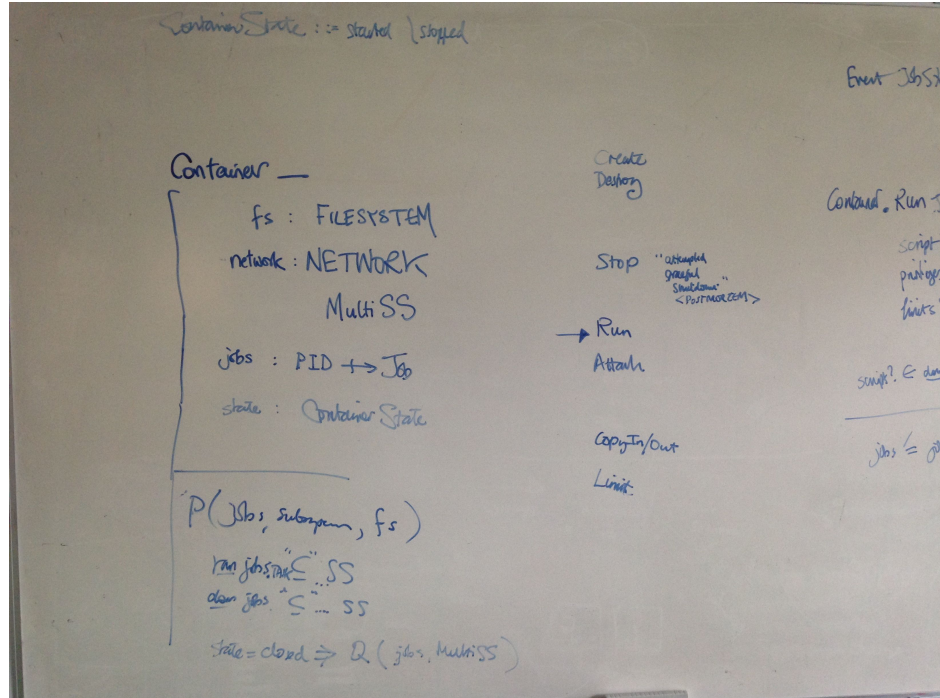 ContainerState ::= started | stopped
Container
fs : FILESYSTEM
network : NETWORK
MultiSS
jobs : PID ⇸ Job
state : ContainerState
P(jobs, subsystem, fs)
ran jobs "⊆" SS
dom jobs "⊆" ... SS
state = closed ⇒ Q (jobs, MultiSS)
Create
Destroy
Stop "attempted
graceful
shutdown"
<POSTMORTEM>
→ Run
Attach
CopyIn/Out
Limit
Event JobS
Container. Run
script
privileges
limits
script? ∈ dom
jobs' =